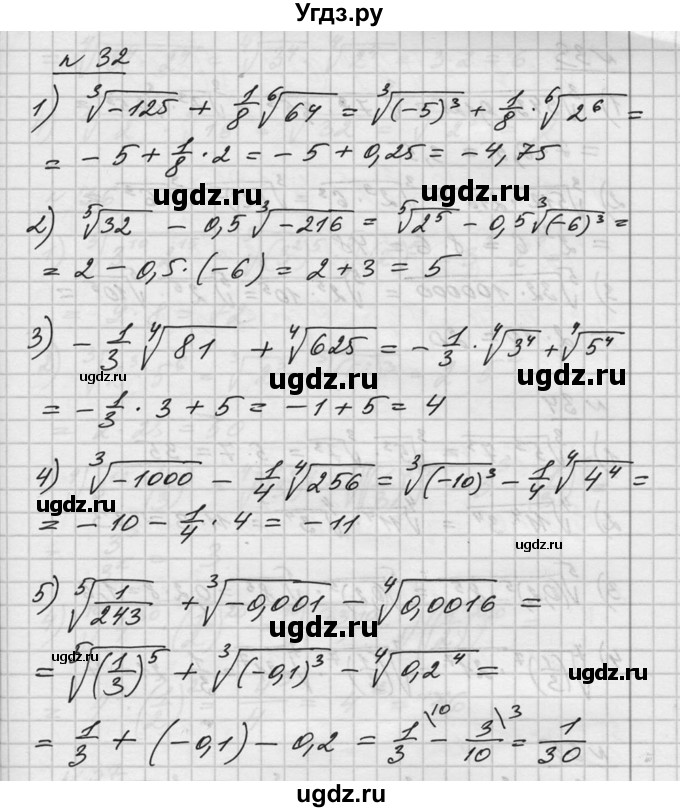 Угдз.ру
№ 32
1) ∛(-125) + 1/8 ⁶√64 = ∛((-5)³) + 1/8 · ⁶√(2⁶) =
= -5 + 1/8 · 2 = -5 + 0,25 = -4,75
ugdz.ru ugdz.ru
2) ⁵√32 - 0,5 ∛(-216) = ⁵√(2⁵) - 0,5 ∛((-6)³) =
ugdz.ru
= 2 - 0,5 · (-6) = 2 + 3 = 5
3) -1/3 ⁴√81 + ⁴√625 = -1/3 · ⁴√(3⁴) + ⁴√(5⁴)
ugdz.ru ugdz.ru ugdz.ru
= -1/3 · 3 + 5 = -1 + 5 = 4
4) ∛(-1000) - 1/4 ⁴√256 = ∛((-10)³) - 1/4 ⁴√(4⁴) =
ugdz.ru
= -10 - 1/4 · 4 = -11
ugdz.ru
5) ⁵√(1/243) + ∛(-0,001) - ⁴√(0,0016) =
ugdz.ru
= ⁵√((1/3)⁵) + ∛((-0,1)³) - ⁴√(0,2⁴) =
ugdz.ru ugdz.ru
= 1/3 + (-0,1) - 0,2 = 1/3 \10 - 3/10 \3 = 1/30
ugdz.ru